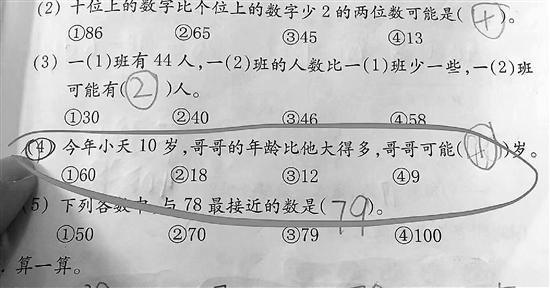 (2) 十位上的数字比个位上的数字少2的两位数可能是(④)。
①86 ②65 ③45 ④13
(3) 一(1)班有44人,一(2)班的人数比一(1)班少一些,一(2)班
可能有(②)人。
①30 ②40 ③46 ④58
(4) 今年小天10岁,哥哥的年龄比他大得多,哥哥可能(④)岁。
①60 ②18 ③12 ④9
(5) 下列各数中,与78最接近的数是(79)。
①50 ②70 ③79 ④100
.算一算。